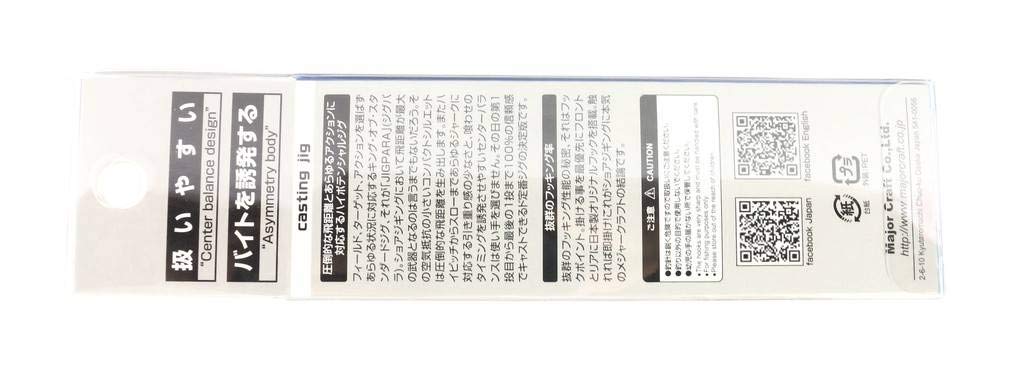 扱いやすい
"Center balance design"
バイトを誘発する
"Asymmetry body"
casting jig
圧倒的な飛距離とあらゆるアクションに
対応するハイポテンシャルジグ
フィールド、ターゲット、アクションを選ばず
あらゆる状況に対応するキング・オブ・スタ
ンダードジグ、それが「JIGPARA」(ジグパ
ラ)。ショアジギングにおいて飛距離が最大
の武器となるのは言うまでもないだろう。そ
の空気抵抗の小さいコンパクトシルエット
は圧倒的な飛距離を生み出します。またハ
イピッチからスローまであらゆるジャークに
対応する引き重り感の少なさと、喰わせの
タイミングを誘発させやすいセンターバラ
ンスは使い手を選びません。その日の第1
投目から最後の1投まで100%の信頼感
でキャストできるド定番ジグの決定版です。
抜群のフッキング率
抜群のフッキング性能の秘密、それはフッ
クポイント。掛ける事を最優先にフロント
とリアに日本製オリジナルフックを搭載。触
れれば即掛け!これがショアジギングに本気
のメジャークラフトの結論です。
ご注意 CAUTION
●釣針は鋭く危険ですので取扱いにご注意ください。
●釣り以外の目的で使用しないでください。
●幼児の手の届かない所で保管してください。
●The hooks are very sharp and must be handled with care.
●For fishing purposes only.
●Please store out of the reach of children.
facebook Japan
facebook English
紙
台紙
プラ
外袋:PET
Major Craft Co.,Ltd.
http://www.majorcraft.co.jp
2-6-10 Kyutaromachi Chuo-ku Osaka Japan 541-0056